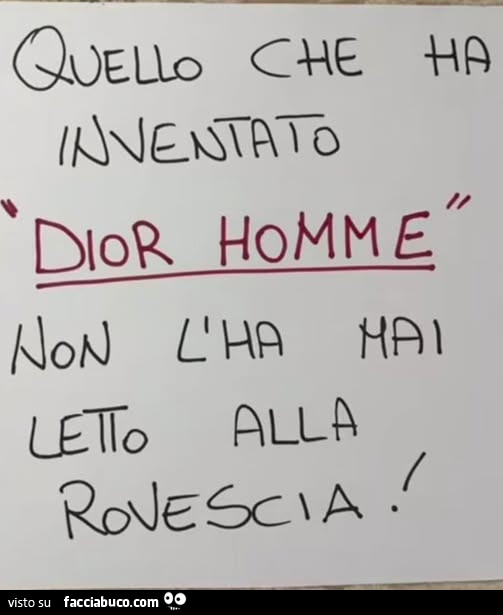 QUELLO CHE HA
INVENTATO
"DIOR HOMME"
NON L'HA MAI
LETTO ALLA
ROVESCIA!
visto su facciabuco.com